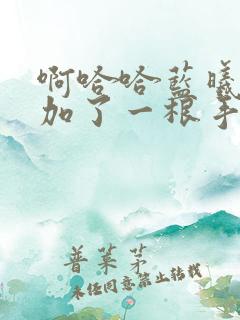 啊哈哈蓝曦
加了一根手
普莱茅
未经同意禁止转载